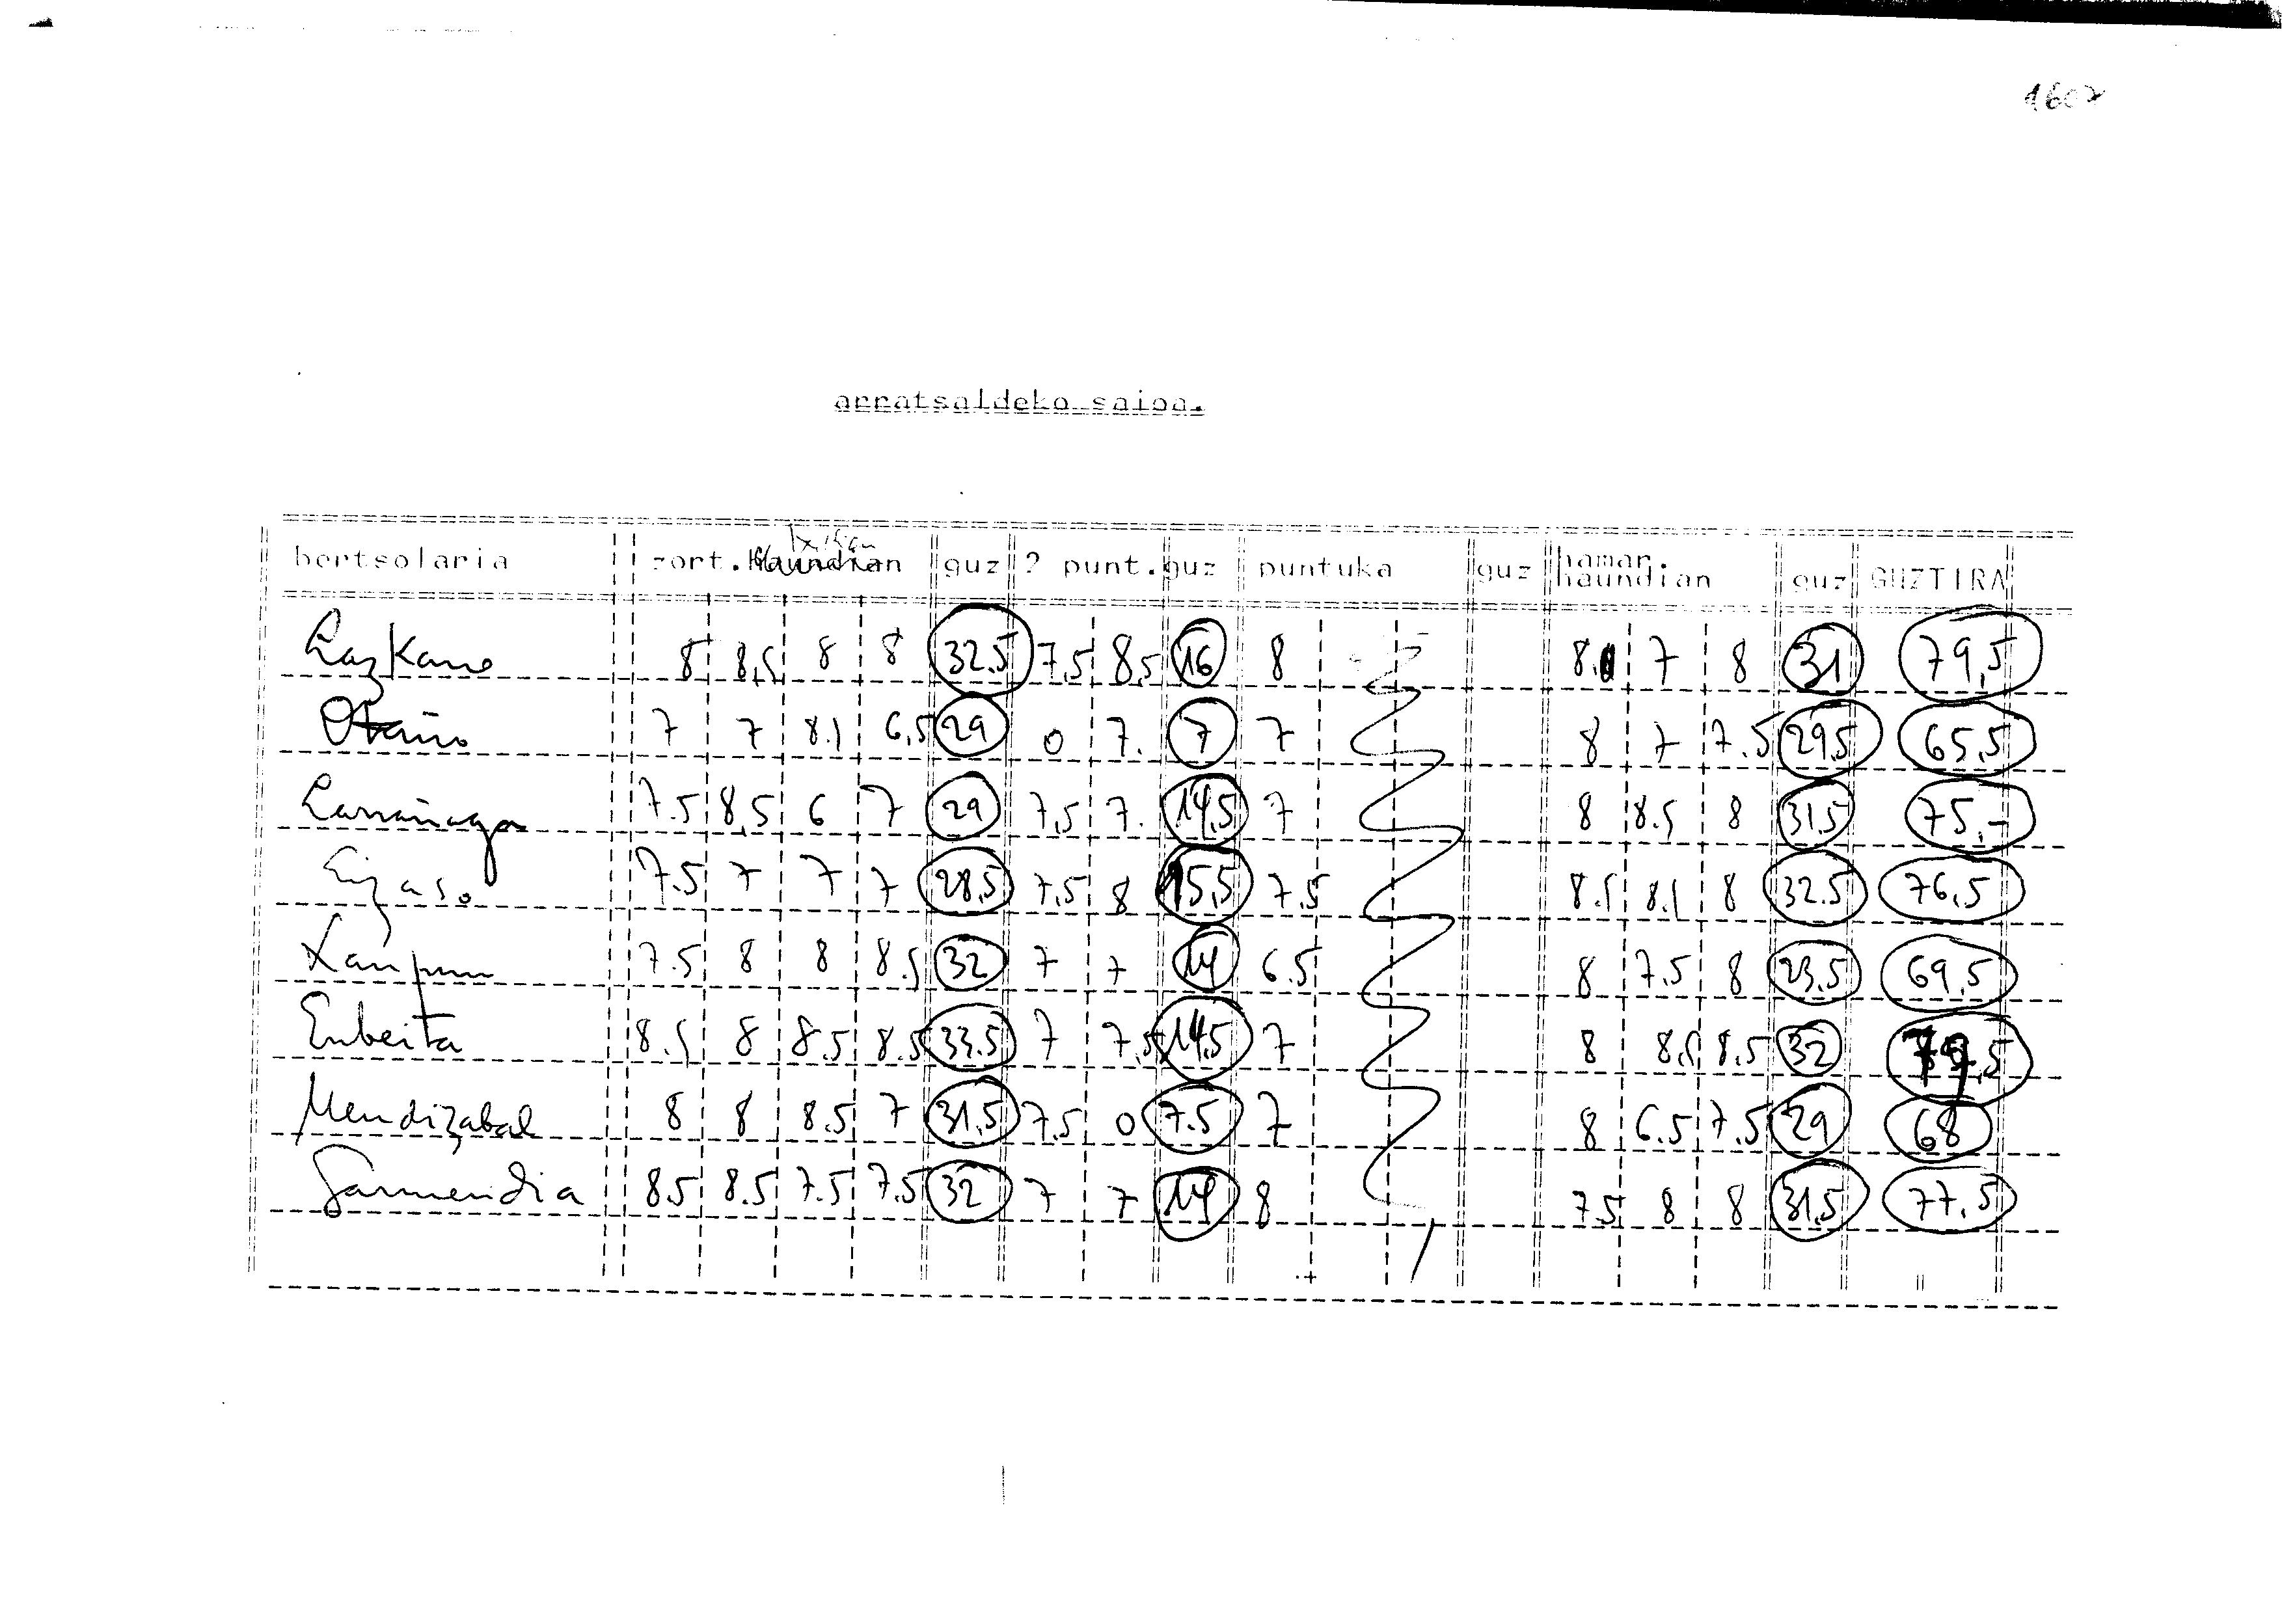 1602
arratsaldeko saioa.
txikian
bertsolaria zort. Haundian guz 2 punt. guz puntuka guz hamar. haundian guz GUZTIRA
Lazkano 8 8,5 8 8 32.5 7,5 8,5 16 8 8. 7 8 31 79,5
Otaño 7 7 8.5 6,5 29 0 7. 7 7 8 7 7.5 29,5 65,5
Larrañaga 7.5 8,5 6 7 29 7,5 7. 14,5 7 8 8.5 8 31,5 75,-
Eizaso 7.5 7 7 7 28,5 7,5 8 15,5 7.5 8.5 8.5 8 32.5 76,5
Xanpun 7.5 8 8 8.5 32 7 7 14 6.5 8 7.5 8 23,5 69,5
Enbeita 8.5 8 8.5 8.5 33.5 7 7,5 14,5 7 8 8,5 8.5 32 79,5
Mendizabal 8 8 8.5 7 31,5 7.5 0 7.5 7 8 6.5 7.5 29 68
Sarmendia 8.5 8.5 7.5 7.5 32 7 7 14 8 7.5 8 8 31,5 77.5